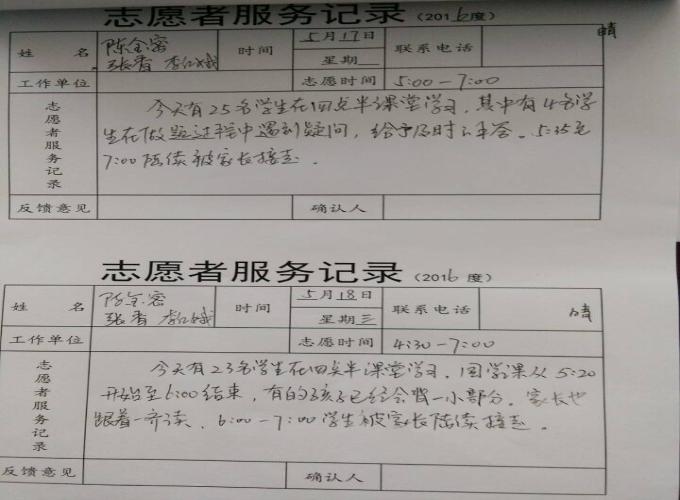 志愿者服务记录（2016度）
晴
姓 名 陈全密 张香 李仁娥 时间 5月17日 星期 联系电话
工作单位 志愿时间 5:00—7:00
志愿者服务记录
今天有25名学生在四点半课堂学习，其中有4名学
生在做题过程中遇到疑问，给予及时解答。5:35至
7:00陆续被家长接走。
反馈意见 确认人
志愿者服务记录（2016度）
姓 名 陈全密 张香 李仁娥 时间 5月18日 星期三 联系电话 晴
工作单位 志愿时间 4:30—7:00
志愿者服务记录
今天有23名学生在四点半课堂学习，国学课从5:20
开始至6:00结束，有的孩子已经会背一小部分。家长也
跟着一齐读，6:00—7:00学生被家长陆续接走。
反馈意见 确认人